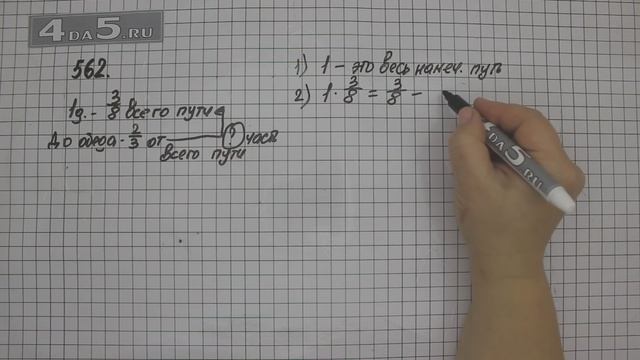 4DA5.RU
562.
1д. - 3/8 всего пути
До обеда - 2/3 от
? част
всего пути
1) 1 - это весь намеч. путь
2) 1 · 3/8 = 3/8 -
4DA5.RU